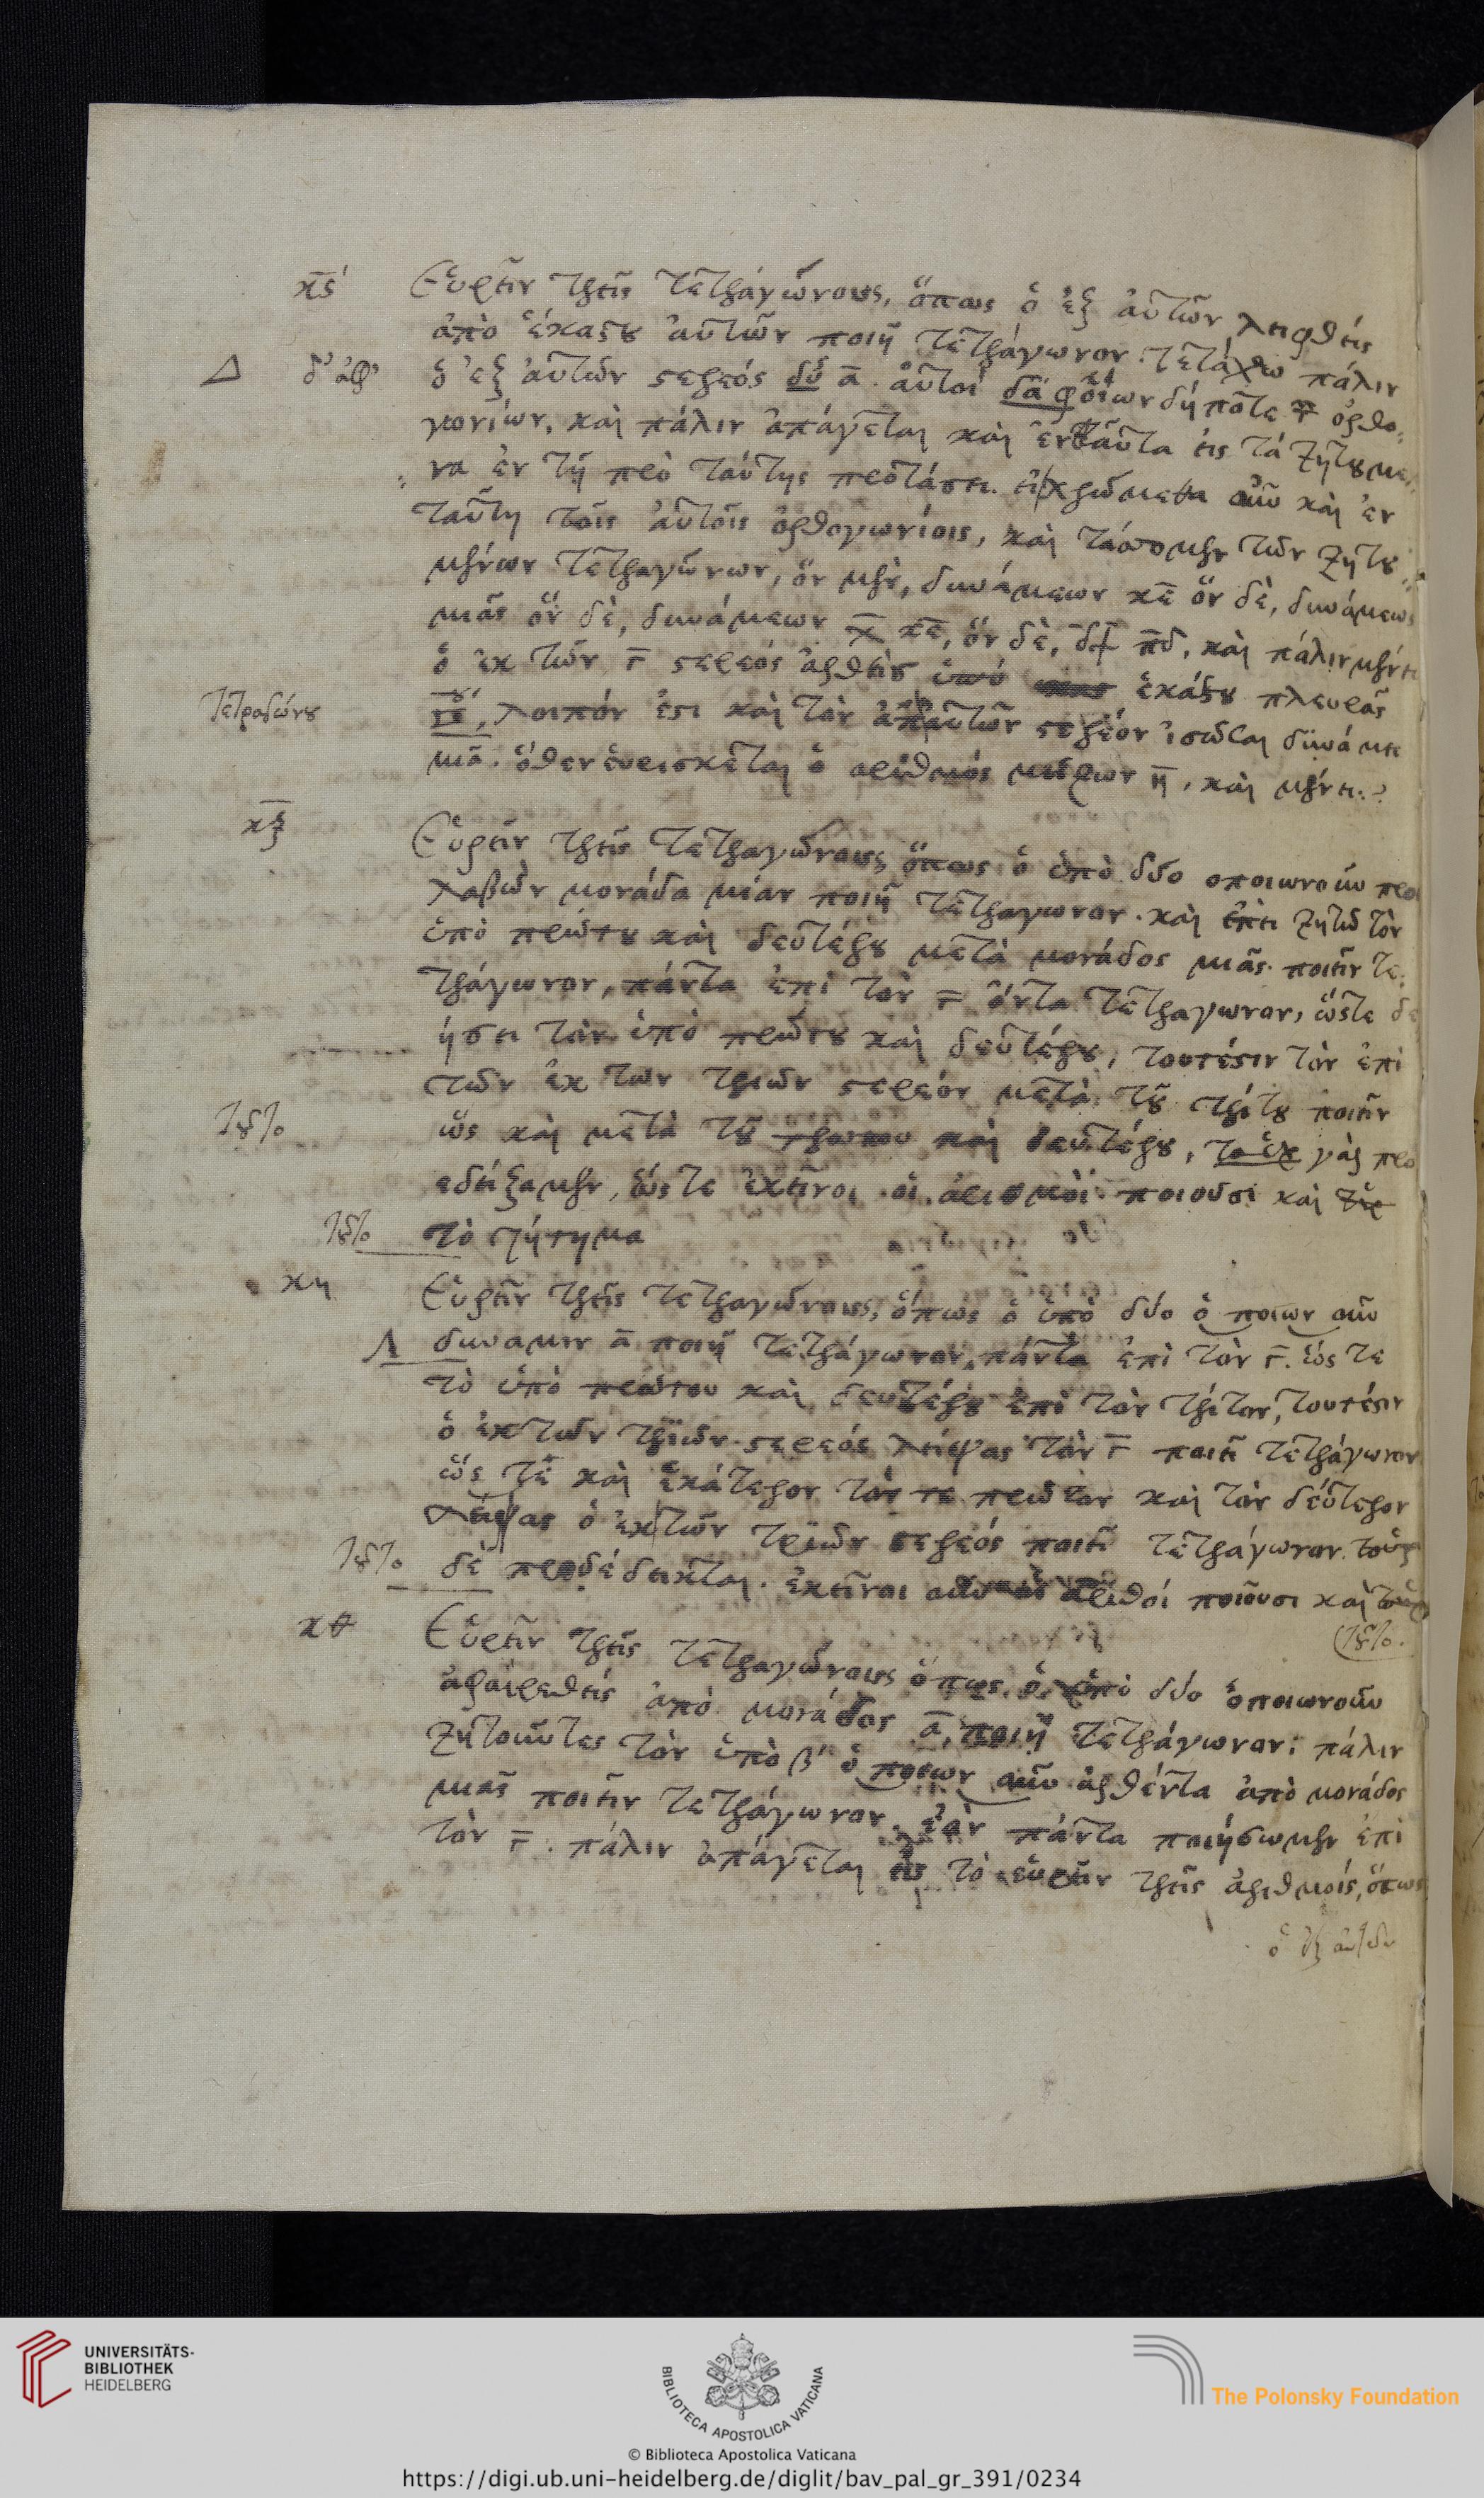 κς΄ Εὑρεῖν τρεῖς τετραγώνους, ὅπως ὁ ἐξ αὐτῶν λειφθεὶς
ἀπὸ ἑκάστου αὐτῶν ποιῇ τετράγωνον. τετάχθω πάλιν
ὁ ἐξ αὐτῶν στερεός δυ ᾱ. αὐτοὶ ὀρθο
γωνίων, καὶ πάλιν ἀπάγεται καὶ ἐνταῦτα εἰς τὰ ζητούμε
να ἐν τῇ πρὸ ταύτης προτάσει. χρώμεθα οὖν καὶ ἐν
ταύτῃ τοῖς αὐτοῖς ὀρθογωνίοις, καὶ τάσσομεν τῶν ζητου
μένων τετραγώνων, ὃν μὲν, δυνάμεων κε ὃν δὲ, δυνάμεως
μιᾶς ὃν δὲ, δυνάμεων χκε, ὃν δὲ, πδ, καὶ πάλιν μένει
ὁ ἐκ τῶν γ στερεός ἀρθεὶς ἑκάστου πλευρᾶς
Τετραγώνου
λοιπόν ἐστι καὶ τὸν αὐτῶν στερεόν ἰσῶσαι δυνάμει
μιᾷ. ὅθεν εὑρίσκεται ὁ ἀριθμός η, καὶ μένει
κζ Εὑρεῖν τρεῖς τετραγώνους ὅπως ὁ ὑπὸ δύο ὁποιωνοῦν προσ
λαβὼν μονάδα μίαν ποιῇ τετράγωνον. καὶ ἐπεὶ ζητῶ τὸν
ὑπὸ πρώτου καὶ δευτέρου μετὰ μονάδος μιᾶς ποιεῖν τε
τράγωνον, πάντα ἐπὶ τὸν γ ὄντα τετράγωνον, ὥστε δε
ήσει τὸν ὑπὸ πρώτου καὶ δευτέρου, τουτέστιν τὸν ἐπὶ
τῶν ἐκ τῶν τριῶν στερεόν μετὰ τοῦ τρίτου ποιεῖν
ὡς καὶ μετὰ τοῦ καὶ δευτέρου, γὰρ προ
εδείξαμεν, ὥστε ἐκεῖνοι οἱ ἀριθμοὶ ποιοῦσι καὶ
τὸ ζήτημα
κη Εὑρεῖν τρεῖς τετραγώνους, ὅπως ὁ ὑπὸ δύο ὁποιων οὖν
Λ δυναμιν ᾱ ποιῇ τετράγωνον, πάντα ἐπὶ τὸν γ. ὥς τε
τὸ ὑπὸ πρώτου καὶ δευτέρου ἐπὶ τὸν τρίτον, τουτέστιν
ὁ ἐκ τῶν τριῶν στερεός λείψας τὸν γ ποιεῖ τετράγωνον
ὥς τε καὶ ἑκάτερον τόν τε πρῶτον καὶ τὸν δεύτερον
λείψας ὁ ἐκ τῶν τριῶν στερεός ποιεῖ τετράγωνον.
δὲ προδέδεικται. ἐκεῖνοι ποιοῦσι καὶ
κθ Εὑρεῖν τρεῖς τετραγώνους ὅπως ὁ ὑπὸ δύο ὁποιωνοῦν
ἀφαιρεθεὶς ἀπὸ μονάδος ᾱ, ποιῇ τετράγωνον· πάλιν
ζητοῦντες τὸν ὑπὸ β ὁποιων οὖν ἀρθέντα ἀπὸ μονάδος
μιᾶς ποιεῖν τετράγωνον, ἐὰν πάντα ποιήσωμεν ἐπὶ
τὸν γ. πάλιν ἀπάγεται εἰς τὸ εὑρεῖν τρεῖς ἀριθμούς, ὅπως
ὁ ἐξ αὐτῶν
UNIVERSITÄTS-
BIBLIOTHEK
HEIDELBERG
BIBLIOTECA APOSTOLICA VATICANA
The Polonsky Foundation
© Biblioteca Apostolica Vaticana
https://digi.ub.uni-heidelberg.de/diglit/bav_pal_gr_391/0234